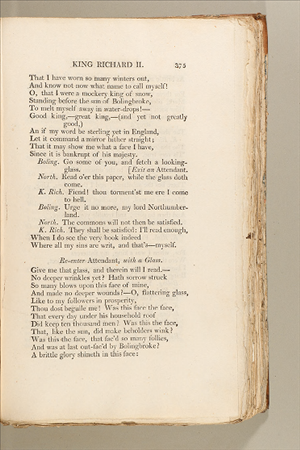 KING RICHARD II. 375
That I have worn so many winters out,
And know not now what name to call myself!
O, that I were a mockery king of snow,
Standing before the sun of Bolingbroke,
To melt myself away in water-drops!—
Good king,—great king,—(and yet not greatly
good,)
An if my word be sterling yet in England,
Let it command a mirror hither straight;
That it may show me what a face I have,
Since it is bankrupt of his majesty.
Boling. Go some of you, and fetch a looking-
glass. [Exit an Attendant.
North. Read o'er this paper, while the glass doth
come.
K. Rich. Fiend! thou torment'st me ere I come
to hell.
Boling. Urge it no more, my lord Northumber-
land.
North. The commons will not then be satisfied.
K. Rich. They shall be satisfied: I'll read enough,
When I do see the very book indeed
Where all my sins are writ, and that's—myself.
Re-enter Attendant, with a Glass.
Give me that glass, and therein will I read.—
No deeper wrinkles yet? Hath sorrow struck
So many blows upon this face of mine,
And made no deeper wounds?—O, flattering glass,
Like to my followers in prosperity,
Thou dost beguile me! Was this face the face,
That every day under his household roof
Did keep ten thousand men? Was this the face,
That, like the sun, did make beholders wink?
Was this the face, that fac'd so many follies,
And was at last out-fac'd by Bolingbroke?
A brittle glory shineth in this face: